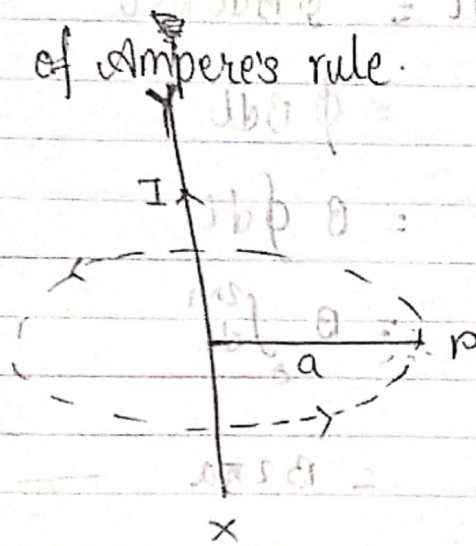 of Ampere's rule.
Y
I
P
a
X